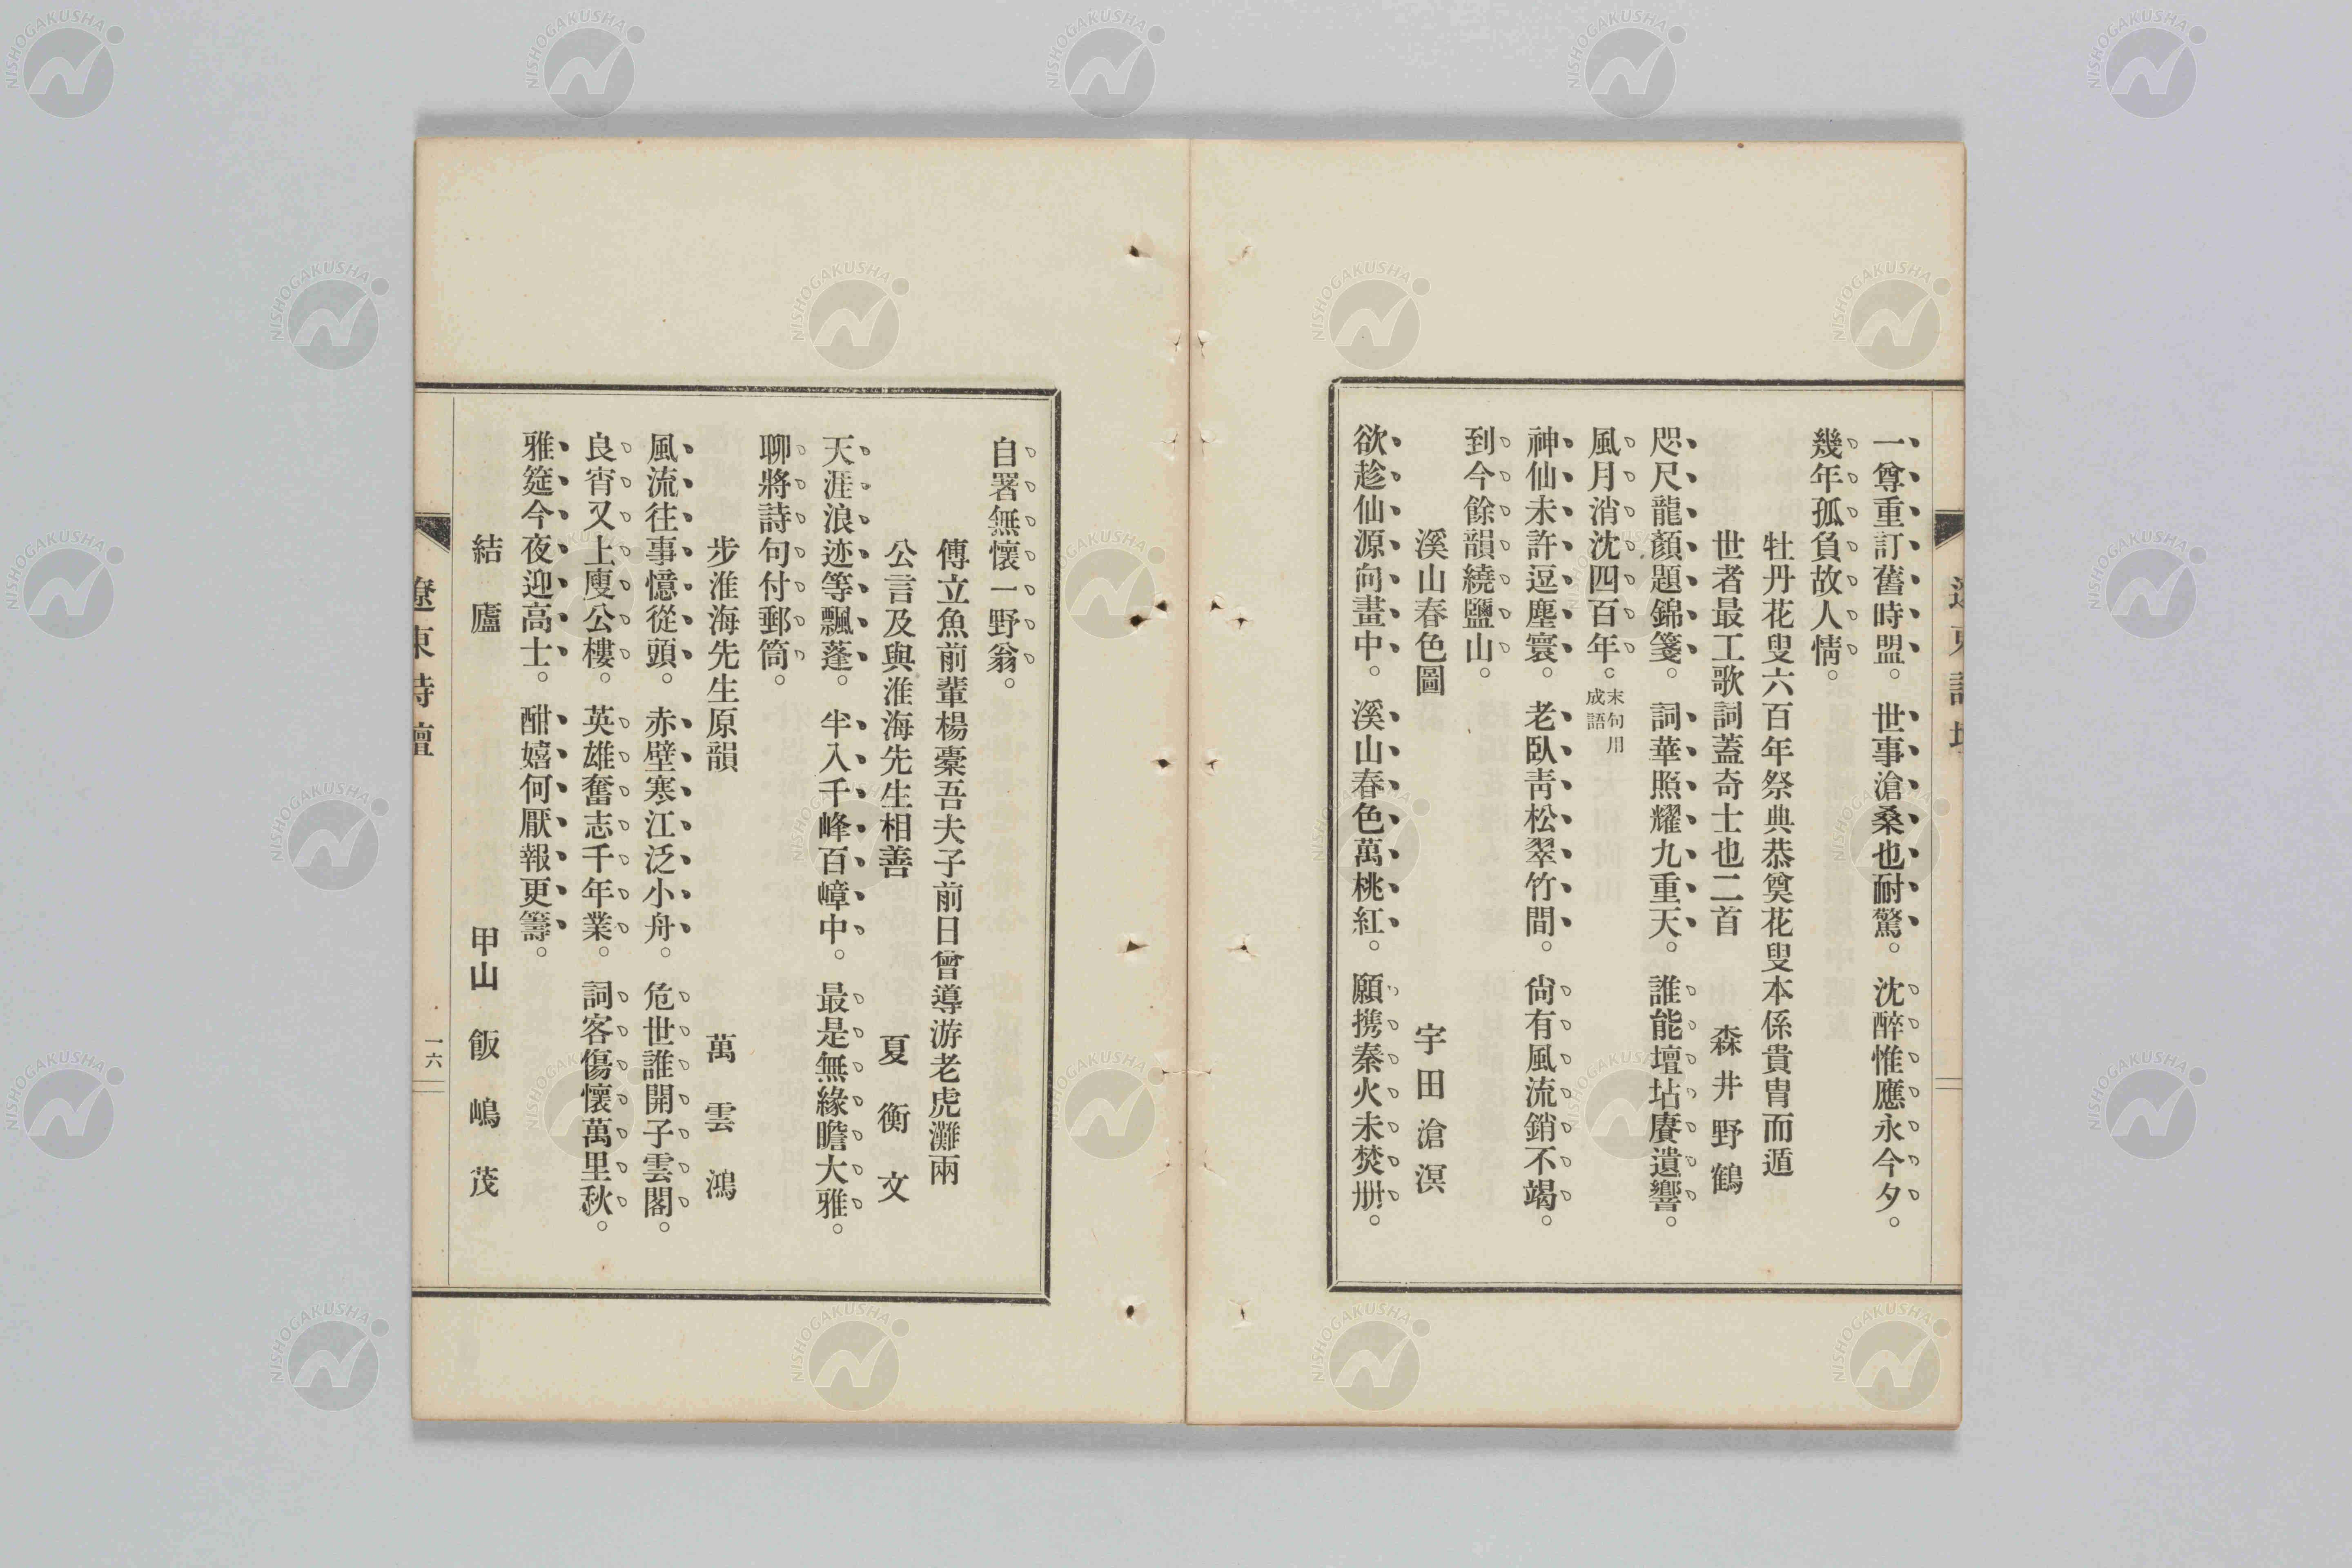 一尊重訂舊時盟。世事滄桑也耐驚。沈醉惟應永今夕。
幾年孤負故人情。
牡丹花叟六百年祭典恭奠花叟本係貴胄而遁
世者最工歌詞蓋奇士也二首 森井野鶴
咫尺龍顏題錦箋。詞華照耀九重天。誰能壇坫賡遺響。
風月消沈四百年。末句用成語
神仙未許逗塵寰。老臥靑松翠竹間。尙有風流銷不竭。
到今餘韻繞鹽山。
溪山春色圖 宇田滄溟
欲趁仙源向畫中。溪山春色萬桃紅。願携秦火未焚册。
自署無懷一野翁。
傅立魚前輩楊櫜吾夫子前日曾導游老虎灘兩
公言及與淮海先生相善 夏衡文
天涯浪迹等飄蓬。半入千峰百嶂中。最是無緣瞻大雅。
聊將詩句付郵筒。
步淮海先生原韻 萬雲鴻
風流往事憶從頭。赤壁寒江泛小舟。危世誰開子雲閣。
良宵又上庾公樓。英雄奮志千年業。詞客傷懷萬里秋。
雅筵今夜迎高士。酣嬉何厭報更籌。
結廬 甲山 飯嶋茂
遼東詩壇
一六
NISHOGAKUSHA